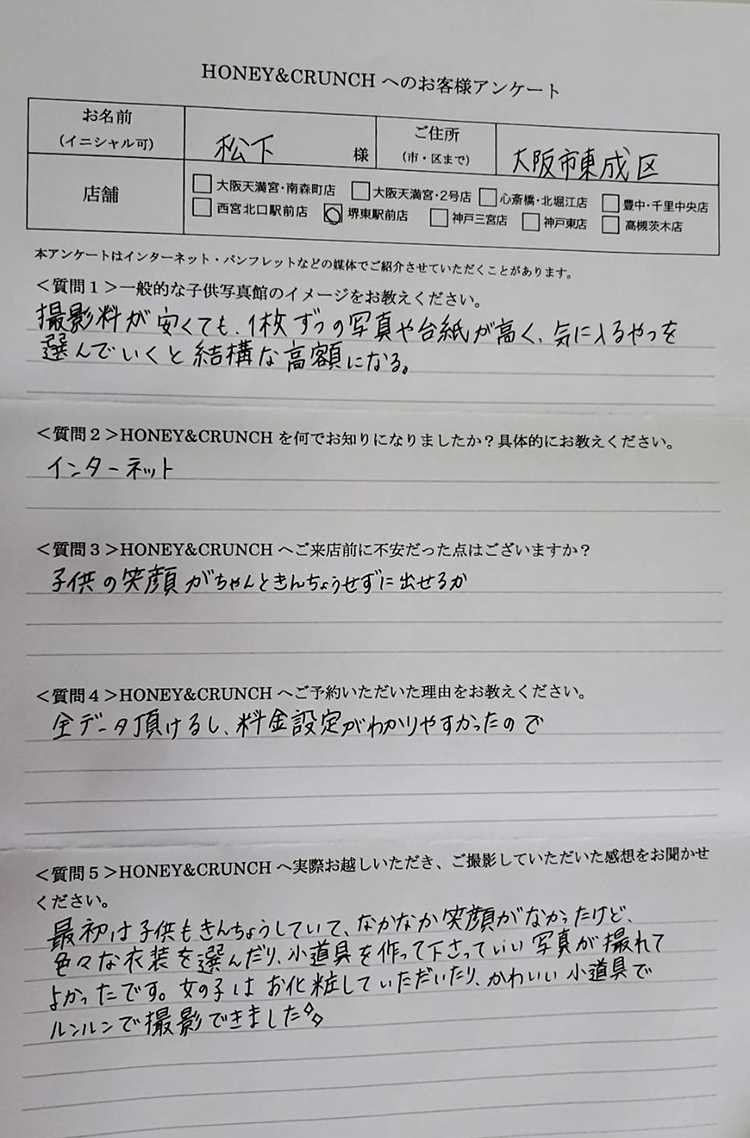 HONEY&CRUNCH へのお客様アンケート
お名前
(イニシャル可)
松下 様
ご住所
(市・区まで)
大阪市東成区
店舗
□大阪天満宮・南森町店 □大阪天満宮・2号店 □心斎橋・北堀江店 □豊中・千里中央店
□西宮北口駅前店 □堺東駅前店 □神戸三宮店 □神戸東店 □高槻茨木店
本アンケートはインターネット・パンフレットなどの媒体でご紹介させていただくことがあります。
＜質問１＞一般的な子供写真館のイメージをお教えください。
撮影料が安くても、1枚ずつの写真や台紙が高く、気に入るやつを
選んでいくと結構な高額になる。
＜質問２＞HONEY&CRUNCH を何でお知りになりましたか？具体的にお教えください。
インターネット
＜質問３＞HONEY&CRUNCH へご来店前に不安だった点はございますか？
子供の笑顔がちゃんときんちょうせずに出せるか
＜質問４＞HONEY&CRUNCH へご予約いただいた理由をお教えください。
全データ頂けるし、料金設定がわかりやすかったので
＜質問５＞HONEY&CRUNCH へ実際お越しいただき、ご撮影していただいた感想をお聞かせ
ください。
最初は子供もきんちょうしていて、なかなか笑顔がなかったけど、
色々な衣装を選んだり、小道具を作って下さっていい写真が撮れて
よかったです。女の子はお化粧していただいたり、かわいい小道具で
ルンルンで撮影できました